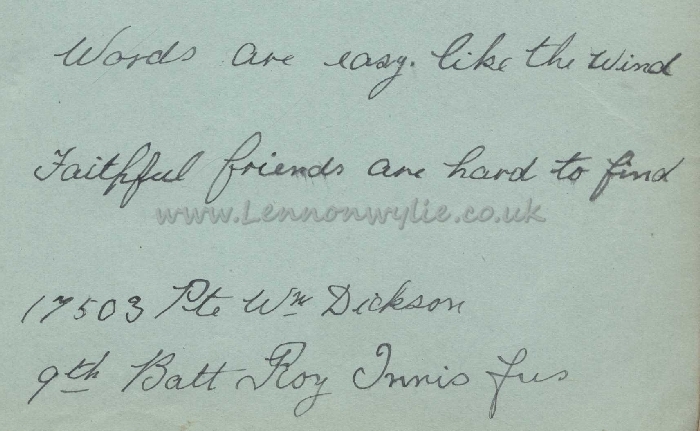 Words are easy. like the Wind
Faithful friends are hard to find
www.Lennonwylie.co.uk
17503 Pte Wm Dickson
9th Batt Roy Innis Fus